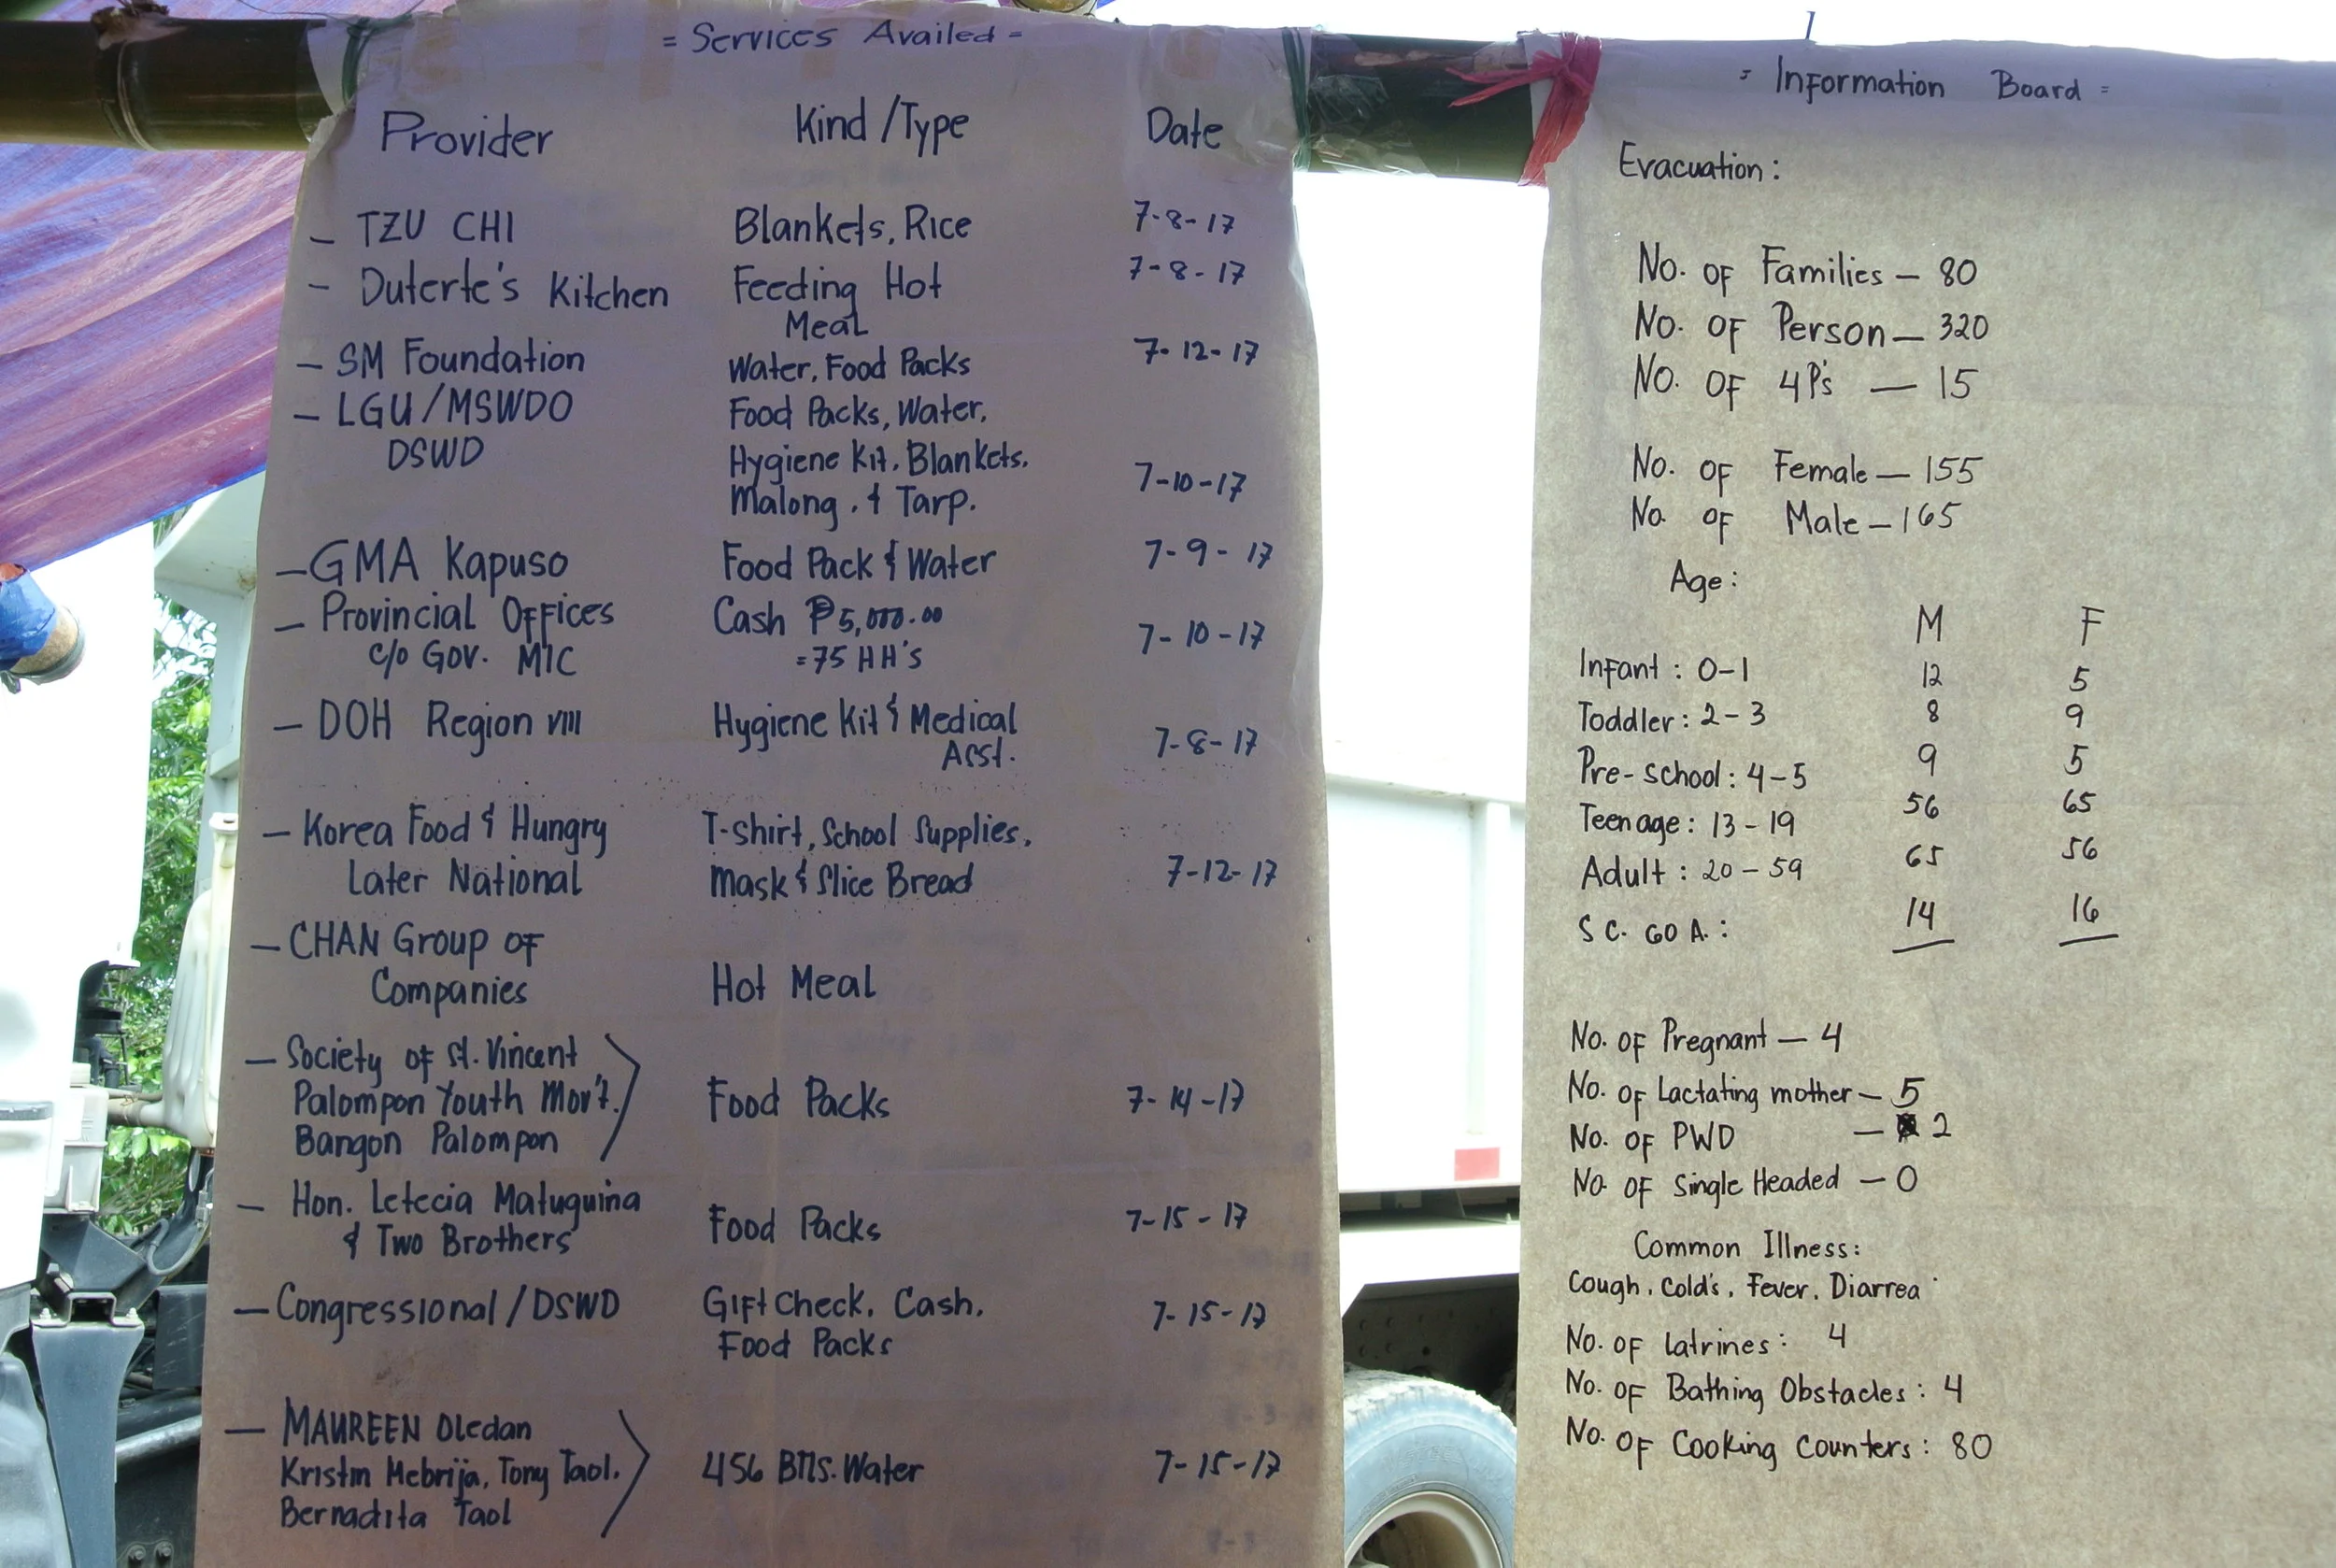 = Services Availed =
Provider Kind/Type Date
– TZU CHI Blankets, Rice 7-8-17
– Duterte's Kitchen Feeding Hot 7-8-17
Meal
– SM Foundation Water, Food Packs 7-12-17
– LGU/MSWDO Food Packs, Water,
DSWD Hygiene Kit, Blankets,
Malong, & Tarp. 7-10-17
– GMA Kapuso Food Pack & Water 7-9-17
– Provincial Offices Cash ₱5,000.00
c/o Gov. MIC =75 HH's 7-10-17
– DOH Region VIII Hygiene Kit & Medical
Asst. 7-8-17
– Korea Food & Hungry T-shirt, School Supplies,
Later National Mask & Slice Bread 7-12-17
– CHAN Group of
Companies Hot Meal
– Society of St. Vincent
Palompon Youth Mov't. Food Packs 7-14-17
Bangon Palompon
– Hon. Letecia Matuguina
& Two Brothers Food Packs 7-15-17
– Congressional/DSWD Gift Check, Cash, 7-15-17
Food Packs
– MAUREEN Oledan
Kristin Mebrija, Tony Taol, 456 Btls. Water 7-15-17
Bernadita Taol
= Information Board =
Evacuation:
No. of Families – 80
No. of Person – 320
No. of 4P's – 15
No. of Female – 155
No. of Male – 165
Age:
M F
Infant: 0-1 12 5
Toddler: 2-3 8 9
Pre-school: 4-5 9 5
Teenage: 13-19 56 65
Adult: 20-59 65 56
S C. 60 A.: 14 16
No. of Pregnant – 4
No. of Lactating mother – 5
No. of PWD – 2
No. of Single Headed – 0
Common Illness:
Cough, Cold's, Fever, Diarrea
No. of Latrines: 4
No. of Bathing Obstacles: 4
No. of Cooking Counters: 80